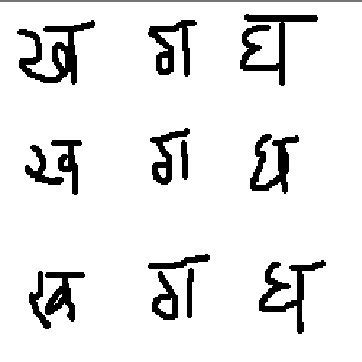 ख ग घ
ख ग घ
ख ग घ